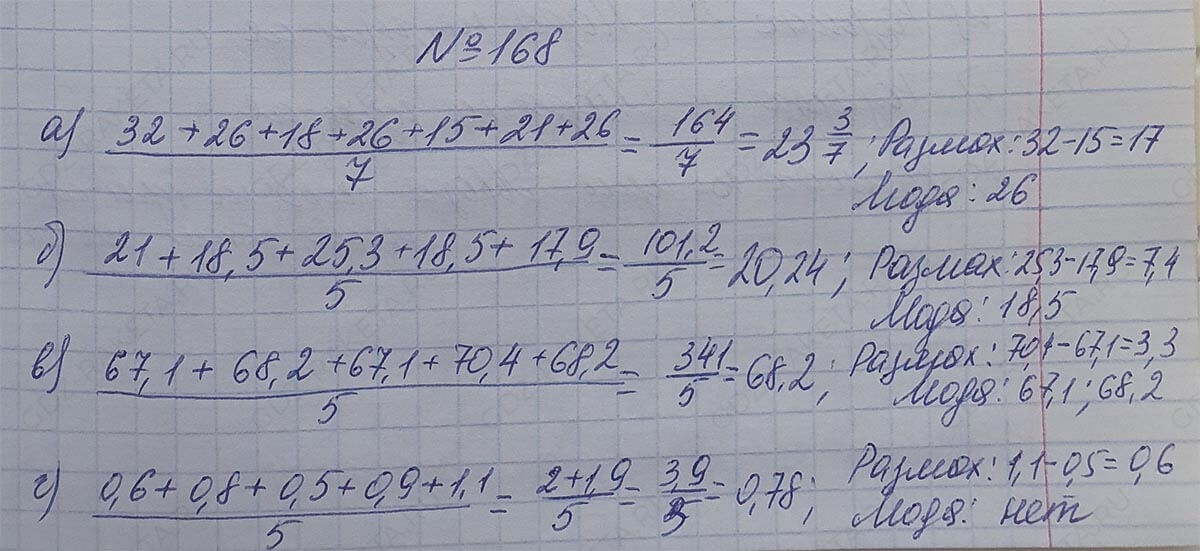 №168
а) 32+26+18+26+15+21+26/7 = 164/7 = 23 3/7; Размах: 32-15=17
Мода: 26
б) 21+18,5+25,3+18,5+17,9/5 = 101,2/5 = 20,24; Размах: 25,3-17,9=7,4
Мода: 18,5
в) 67,1+68,2+67,1+70,4+68,2/5 = 341/5 = 68,2; Размах: 70,4-67,1=3,3
Мода: 67,1; 68,2
г) 0,6+0,8+0,5+0,9+1,1/5 = 2+1,9/5 = 3,9/5 = 0,78; Размах: 1,1-0,5=0,6
Мода: нет